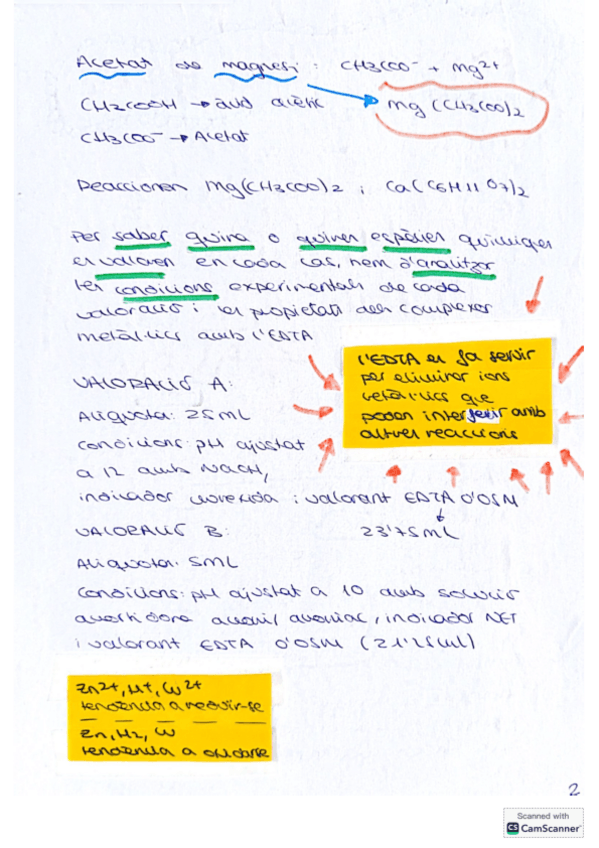 Acetat de magnesi: CH3COO- + Mg2+
CH3COOH → àcid acètic
Mg(CH3COO)2
CH3COO- → Acetat
Reaccionen Mg(CH3COO)2 i Ca(C6H11O7)2
Per saber quina o quines espècies químiques
es valoren en cada cas, hem d'analitzar
les condicions experimentals de cada
valoració i les propietats dels complexes
metàl·lics amb l'EDTA
L'EDTA es fa servir
per eliminar ions
metàl·lics que
poden interferir amb
altres reaccions
VALORACIÓ A:
Alíquota: 25mL
Condicions: pH ajustat
a 12 amb NaOH,
indicador murexida i valorant EDTA 0'05M
23'75mL
VALORACIÓ B:
Alíquota: 5mL
Condicions: pH ajustat a 10 amb solució
amortidora amoni amoníac, indicador NET
i valorant EDTA 0'05M (21'25ml)
Zn2+, H+, Cu2+
tendència a reduir-se
Zn, H2, Cu
tendència a oxidarse
2
Scanned with
CS CamScanner